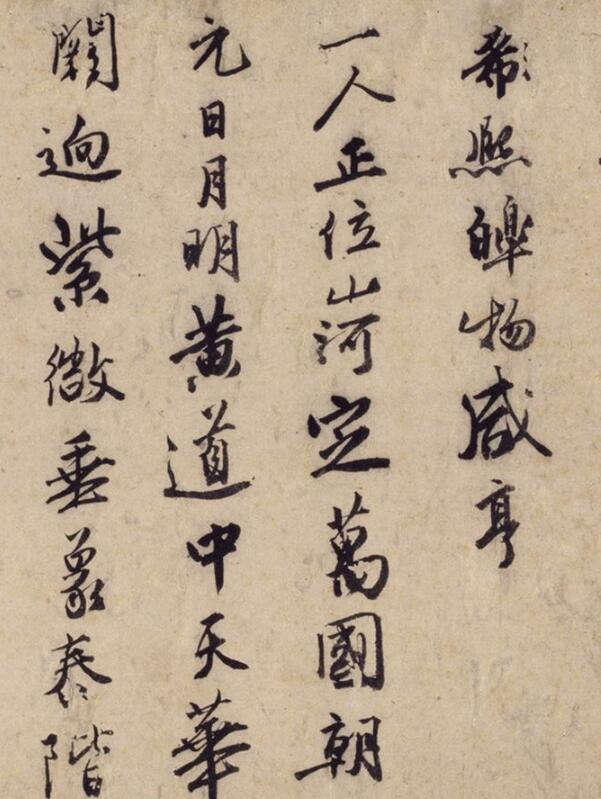 熙皥物咸亨
一人正位山河定萬國朝
元日月明黃道中天華
闕迥紫微垂象泰階